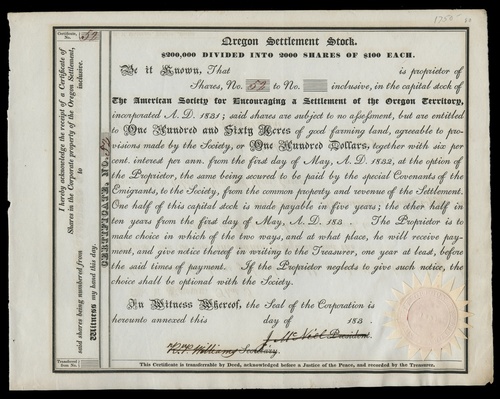 1750
Oregon Settlement Stock.
$200,000 DIVIDED INTO 2000 SHARES OF $100 EACH.
Be it Known, That is proprietor of
Shares, No. 52 to No. inclusive, in the capital stock of
The American Society for Encouraging a Settlement of the Oregon Territory,
incorporated A. D. 1831; said shares are subject to no assessment, but are entitled
to One Hundred and Sixty Acres of good farming land, agreeable to pro-
visions made by the Society, or One Hundred Dollars, together with six per
cent. interest per ann. from the first day of May, A. D. 1832, at the option of
the Proprietor, the same being secured to be paid by the special Covenants of the
Emigrants, to the Society, from the common property and revenue of the Settlement.
One half of this capital stock is made payable in five years; the other half in
ten years from the first day of May, A. D. 183 . The Proprietor is to
make choice in which of the two ways, and at what place, he will receive pay-
ment, and give notice thereof in writing to the Treasurer, one year at least, before
the said times of payment. If the Proprietor neglects to give such notice, the
choice shall be optional with the Society.
In Witness Whereof, the Seal of the Corporation is
hereunto annexed this day of 183 .
J. McNiel President.
P. P. Williams Secretary.
This Certificate is transferrable by Deed, acknowledged before a Justice of the Peace, and recorded by the Treasurer.
CERTIFICATE, NO. 52
Certificate, No. 52
I hereby acknowledge the receipt of a Certificate of
Shares in the Corporate property of the Oregon Settlement,
said shares being numbered from to inclusive.
Witness my hand this day.
Transferred from No.